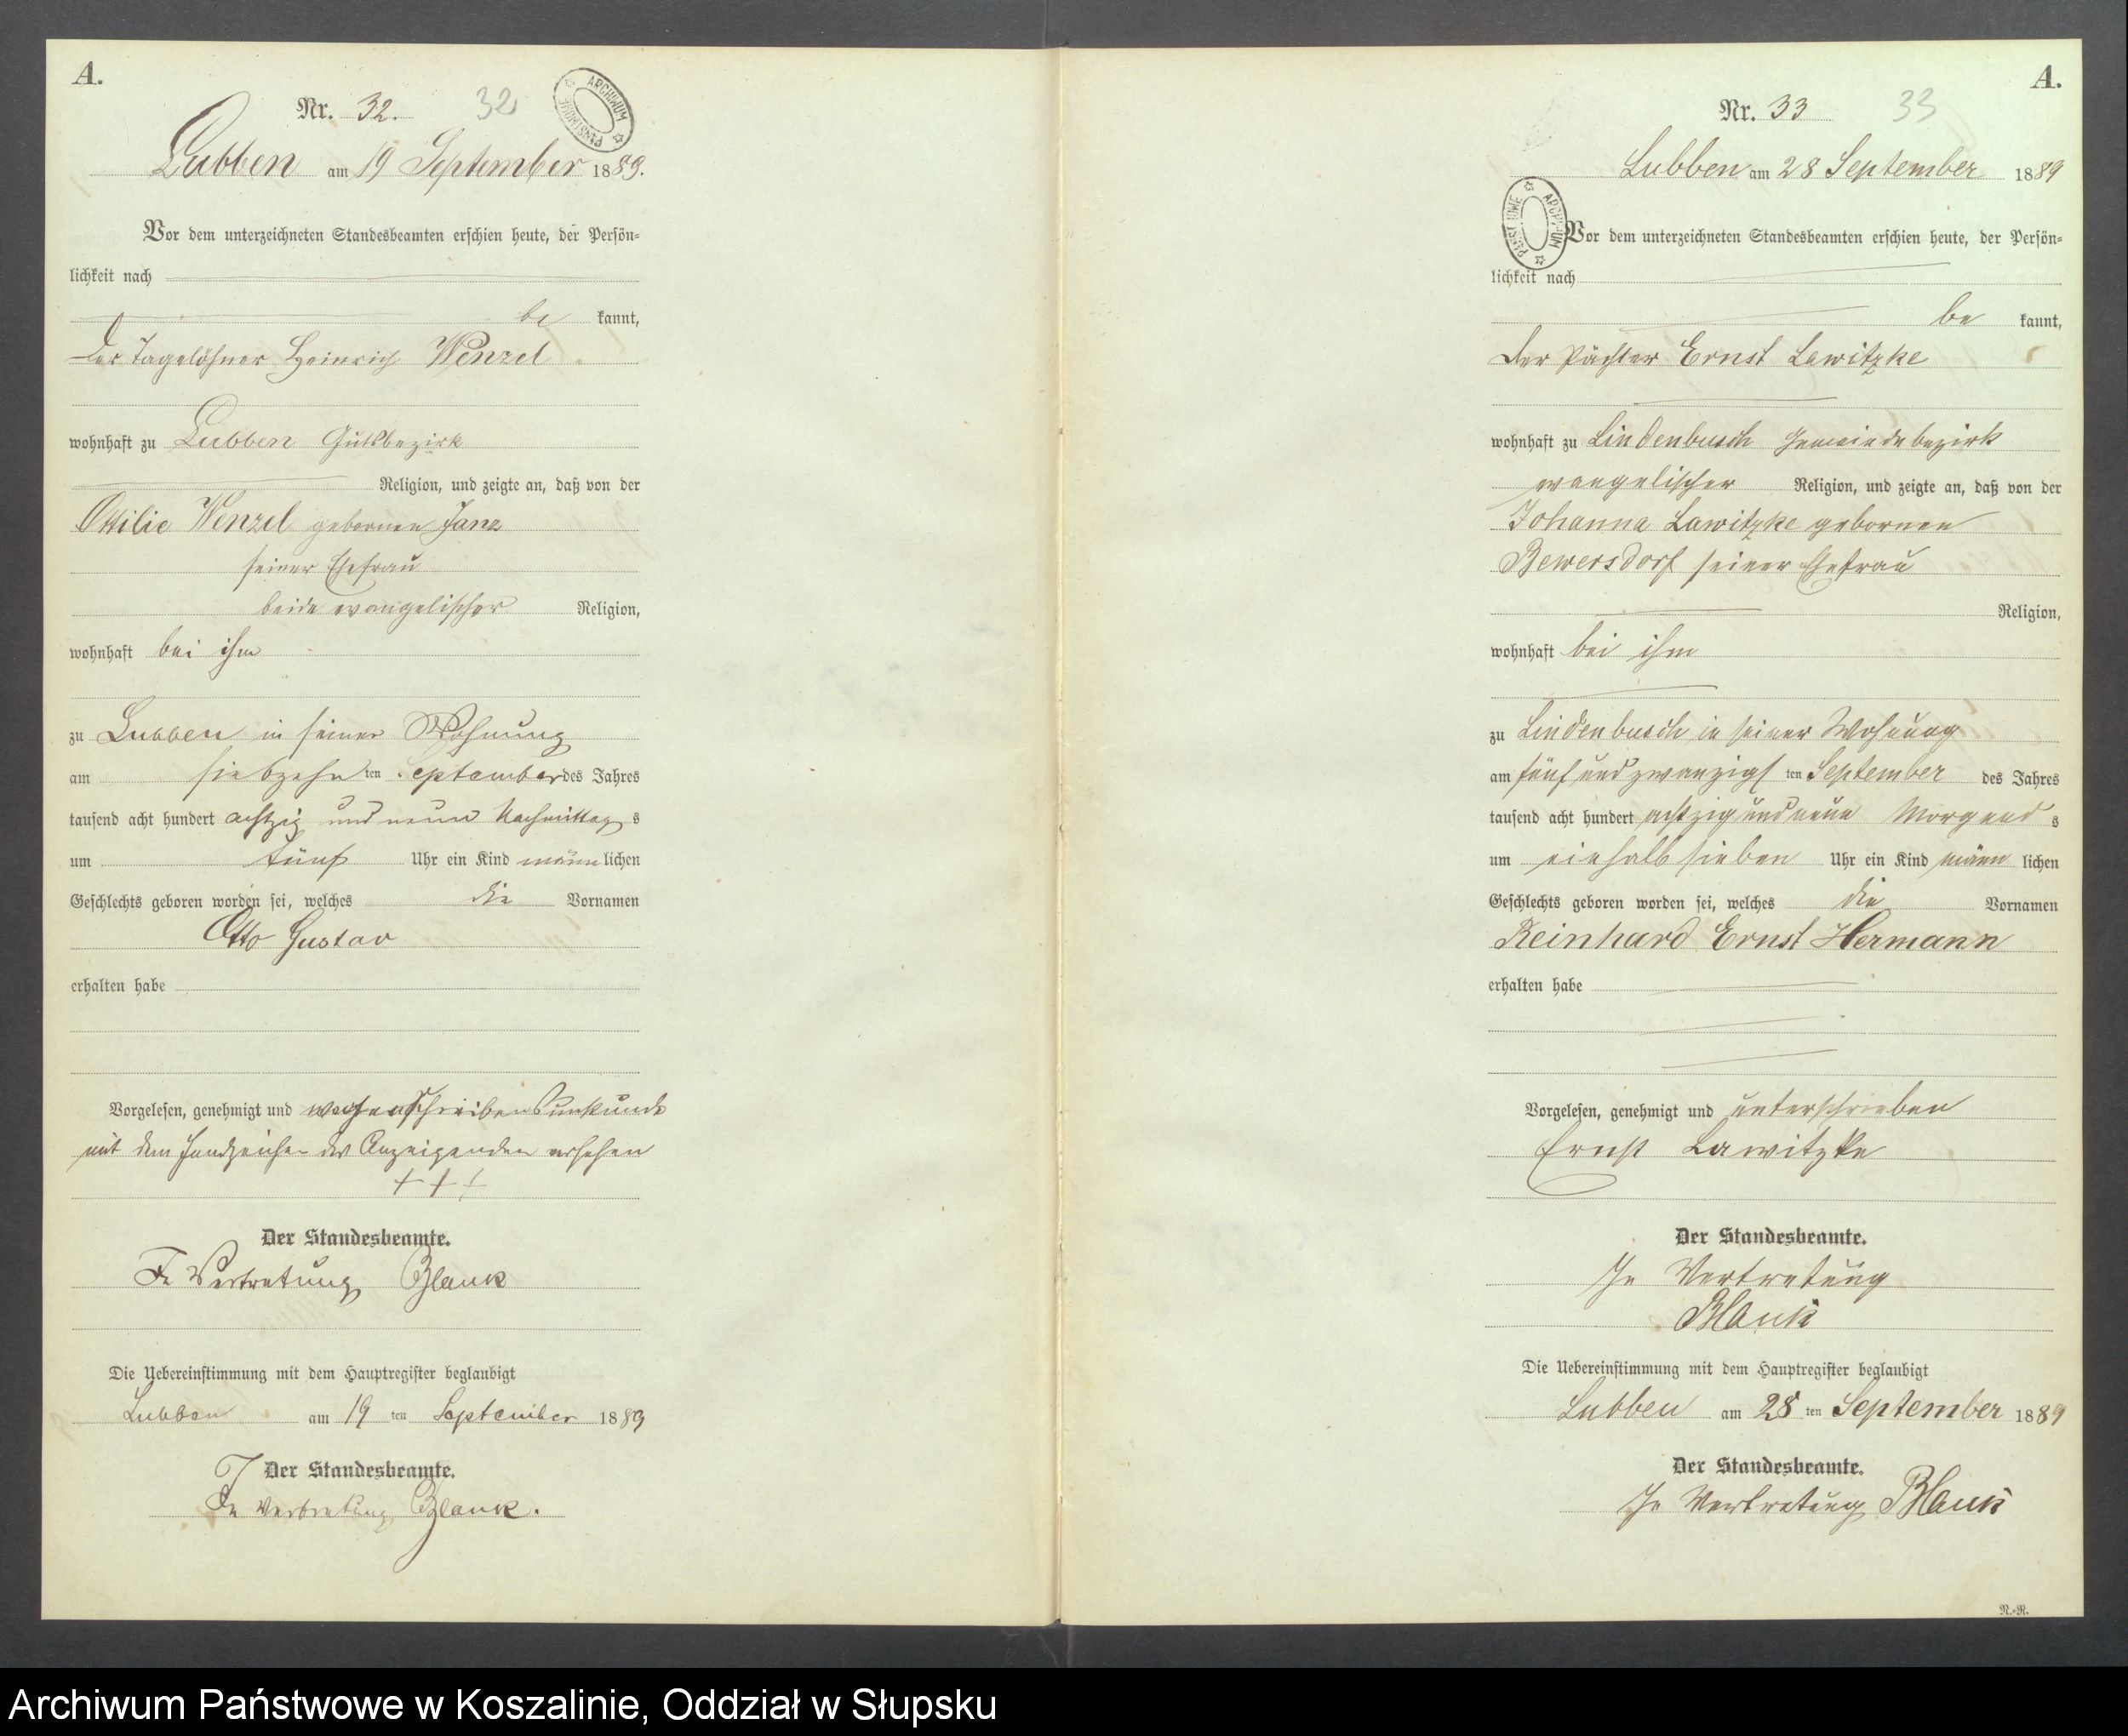 A.
Nr. 32. 32
ARCHIWUM PAŃSTWOWE
Lubben am 19 September 1889.
Vor dem unterzeichneten Standesbeamten erschien heute, der Persön=
lichkeit nach
be kannt,
der Tagelöhner Heinrich Wenzel
wohnhaft zu Lubben Gutsbezirk
Religion, und zeigte an, daß von der
Ottilie Wenzel gebornen Janz
seiner Ehefrau
beide evangelischer Religion,
wohnhaft bei ihm
zu Lubben in seiner Wohnung
am siebzehn ten September des Jahres
tausend acht hundert achtzig und neun Nachmittag s
um fünf Uhr ein Kind männlichen
Geschlechts geboren worden sei, welches die Vornamen
Otto Gustav
erhalten habe
Vorgelesen, genehmigt und wegen Schreibensunkunde
mit dem Handzeichen des Anzeigenden versehen
+ + +
Der Standesbeamte.
In Vertretung Blank
Die Uebereinstimmung mit dem Hauptregister beglaubigt
Lubben am 19 ten September 1889
Der Standesbeamte.
In Vertretung Blank.
A.
Nr. 33 33
Lubben am 28 September 1889
ARCHIWUM PAŃSTWOWE
Vor dem unterzeichneten Standesbeamten erschien heute, der Persön=
lichkeit nach
be kannt,
der Pächter Ernst Lawitzke
wohnhaft zu Lindenbusch Gemeindebezirk
evangelischer Religion, und zeigte an, daß von der
Johanna Lawitzke gebornen
Bewersdorf seiner Ehefrau
Religion,
wohnhaft bei ihm
zu Lindenbusch in seiner Wohnung
am fünf und zwanzigs ten September des Jahres
tausend acht hundert achtzig und neun Morgend s
um einhalb sieben Uhr ein Kind männ lichen
Geschlechts geboren worden sei, welches die Vornamen
Reinhard Ernst Hermann
erhalten habe
Vorgelesen, genehmigt und unterschrieben
Ernst Lawitzke
Der Standesbeamte.
In Vertretung
Blank
Die Uebereinstimmung mit dem Hauptregister beglaubigt
Lubben am 28 ten September 1889
Der Standesbeamte.
In Vertretung Blank
R.=R.
Archiwum Państwowe w Koszalinie, Oddział w Słupsku